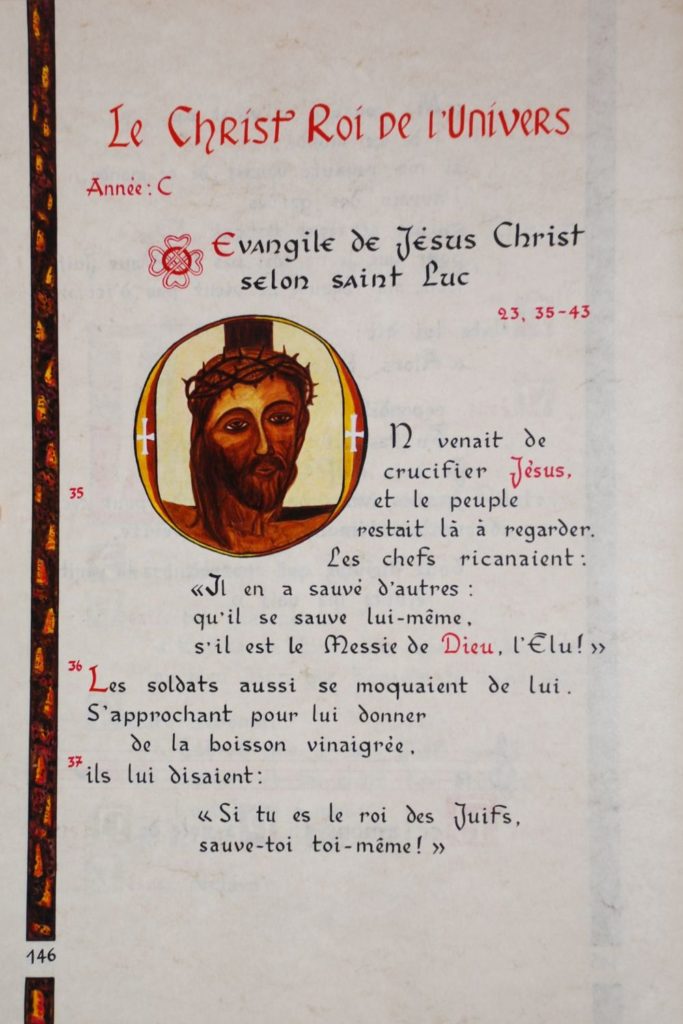 Le Christ Roi de l'Univers
Année : C
Evangile de Jésus Christ
selon saint Luc
23, 35-43
35
N venait de
crucifier Jésus,
et le peuple
restait là à regarder.
Les chefs ricanaient :
«Il en a sauvé d'autres :
qu'il se sauve lui-même,
s'il est le Messie de Dieu, l'Élu!»
36
Les soldats aussi se moquaient de lui.
S'approchant pour lui donner
de la boisson vinaigrée,
37
ils lui disaient :
« Si tu es le roi des Juifs,
sauve-toi toi-même ! »
146